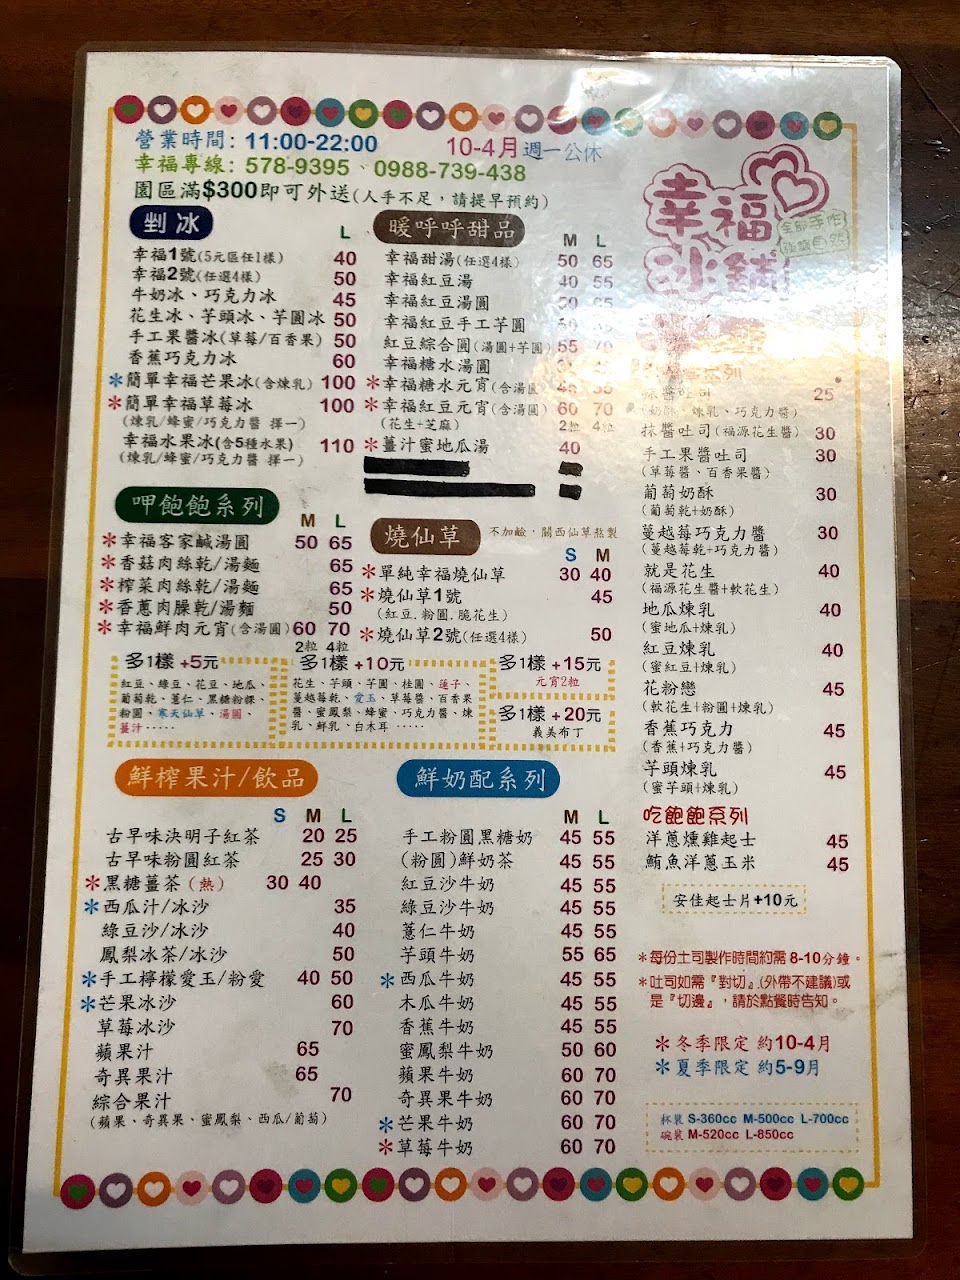 營業時間: 11:00-22:00
10-4月週一公休
幸福專線: 578-9395、0988-739-438
園區滿$300即可外送(人手不足，請提早預約)
幸福
冰鋪
全部手作
剉冰
L
幸福1號(5元區任1樣) 40
幸福2號(任選4樣) 50
牛奶冰、巧克力冰 45
花生冰、芋頭冰、芋圓冰 50
手工果醬冰(草莓/百香果) 50
香蕉巧克力冰 60
*簡單幸福芒果冰(含煉乳) 100
*簡單幸福草莓冰 100
(煉乳/蜂蜜/巧克力醬 擇一)
幸福水果冰(含5種水果) 110
(煉乳/蜂蜜/巧克力醬 擇一)
暖呼呼甜品
M L
幸福甜湯(任選4樣) 50 65
幸福紅豆湯 40 55
幸福紅豆湯圓 50 65
幸福紅豆手工芋圓
紅豆綜合圓(湯圓+芋圓) 55 70
幸福糖水湯圓
*幸福糖水元宵(含湯圓)
*幸福紅豆元宵(含湯圓) 60 70
(花生+芝麻) 2粒 4粒
*薑汁蜜地瓜湯 40
呷飽飽系列
M L
*幸福客家鹹湯圓 50 65
*香菇肉絲乾/湯麵 65
*榨菜肉絲乾/湯麵 65
*香蔥肉臊乾/湯麵 50
*幸福鮮肉元宵(含湯圓) 60 70
2粒 4粒
燒仙草 不加鹼，關西仙草熬製
S M
*單純幸福燒仙草 30 40
*燒仙草1號 45
(紅豆.粉圓.脆花生)
*燒仙草2號(任選4樣) 50
多1樣 +5元
紅豆、綠豆、花豆、地瓜、
葡萄乾、薏仁、黑糖粉粿、
粉圓、寒天仙草、湯圓、
薑汁·····
多1樣 +10元
花生、芋頭、芋圓、桂圓、蓮子、
蔓越莓乾、愛玉、草莓醬、百香果
醬、蜜鳳梨、蜂蜜、巧克力醬、煉
乳、鮮乳、白木耳 ·····
多1樣 +15元
元宵2粒
多1樣 +20元
義美布丁
鮮榨果汁/飲品
S M L
古早味決明子紅茶 20 25
古早味粉圓紅茶 25 30
*黑糖薑茶(熱) 30 40
*西瓜汁/冰沙 35
綠豆沙/冰沙 40
鳳梨冰茶/冰沙 50
*手工檸檬愛玉/粉愛 40 50
*芒果冰沙 60
草莓冰沙 70
蘋果汁 65
奇異果汁 65
綜合果汁 70
(蘋果、奇異果、蜜鳳梨、西瓜/葡萄)
鮮奶配系列
M L
手工粉圓黑糖奶 45 55
(粉圓)鮮奶茶 45 55
紅豆沙牛奶 45 55
綠豆沙牛奶 45 55
薏仁牛奶 45 55
芋頭牛奶 55 65
*西瓜牛奶 45 55
木瓜牛奶 45 55
香蕉牛奶 45 55
蜜鳳梨牛奶 50 60
蘋果牛奶 60 70
奇異果牛奶 60 70
*芒果牛奶 60 70
*草莓牛奶 60 70
系列
抹醬吐司 25
(奶酥、煉乳、巧克力醬)
抹醬吐司(福源花生醬) 30
手工果醬吐司 30
(草莓醬、百香果醬)
葡萄奶酥 30
(葡萄乾+奶酥)
蔓越莓巧克力醬 30
(蔓越莓乾+巧克力醬)
就是花生 40
(福源花生醬+軟花生)
地瓜煉乳 40
(蜜地瓜+煉乳)
紅豆煉乳 40
(蜜紅豆+煉乳)
花粉戀 45
(軟花生+粉圓+煉乳)
香蕉巧克力 45
(香蕉+巧克力醬)
芋頭煉乳 45
(蜜芋頭+煉乳)
吃飽飽系列
洋蔥燻雞起士 45
鮪魚洋蔥玉米 45
安佳起士片+10元
*每份土司製作時間約需 8-10分鐘。
*吐司如需『對切』.(外帶不建議)或
是『切邊』，請於點餐時告知。
*冬季限定 約10-4月
*夏季限定 約5-9月
杯裝 S-360cc M-500cc L-700cc
碗裝 M-520cc L-850cc